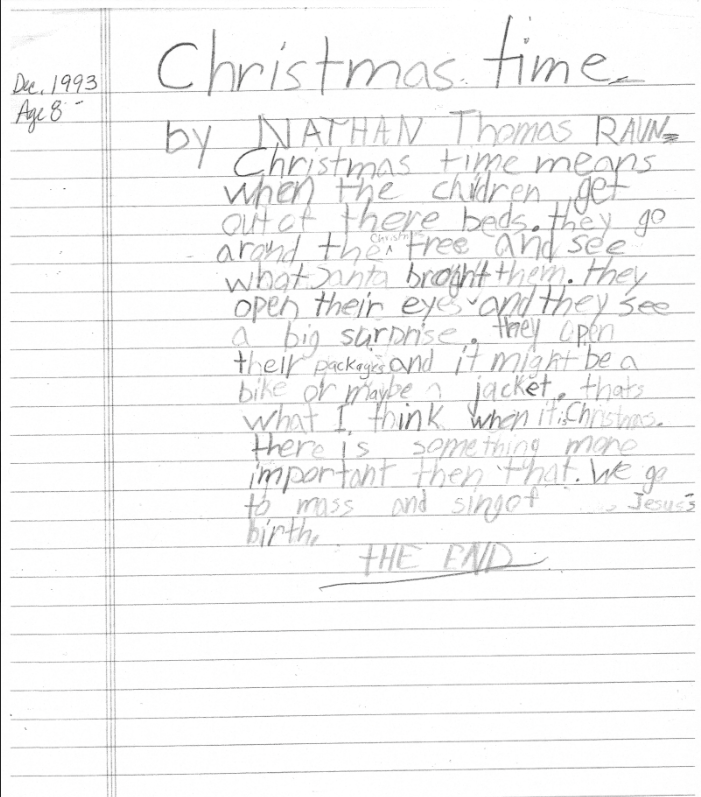 Christmas time
Dec. 1993
Age 8
by NATHAN Thomas RAUN
Christmas time means
when the children get
out of there beds. they go
arond the Christmas tree and see
what Santa broght them. they
open their eyes and they see
a big surprise. they open
their packages and it might be a
bike or maybe a jacket. thats
what I think when it is Christmas.
there is something more
important then that. We go
to mass and sing of Jesus's
birth.
THE END